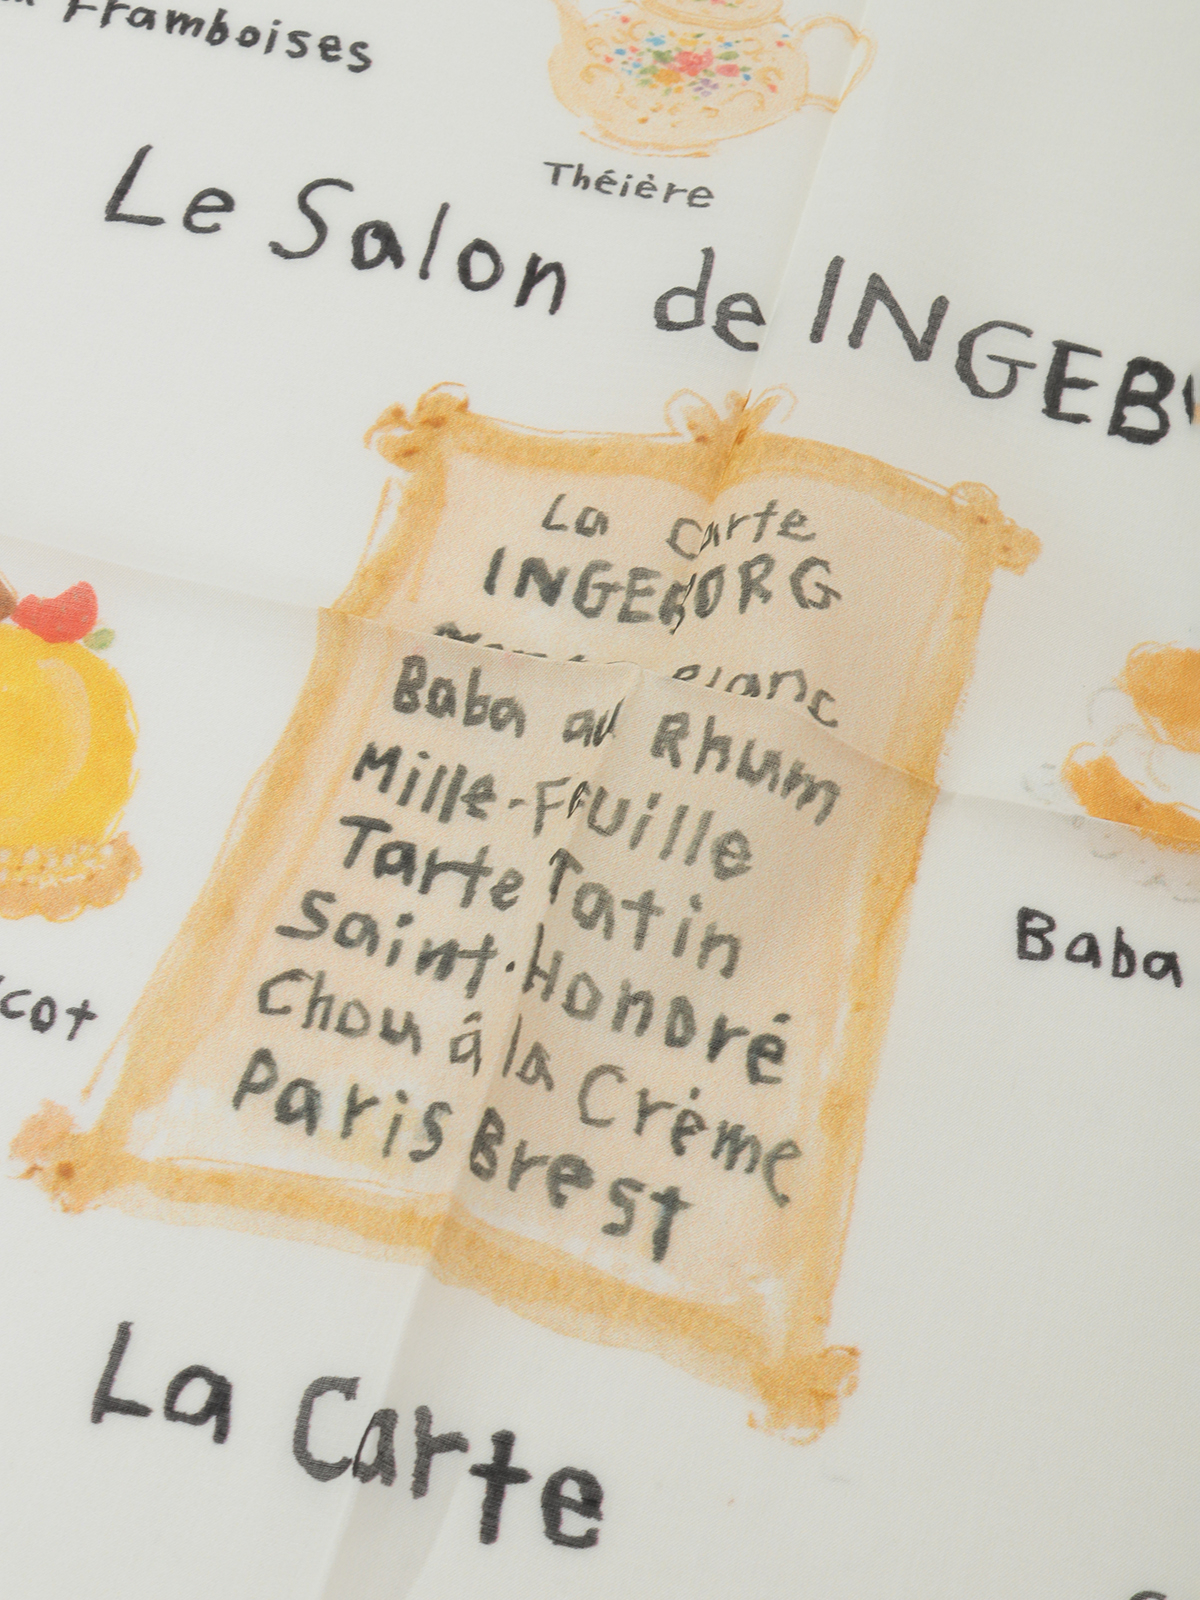 Framboises
Théière
Le Salon de INGEB
La Carte
INGEBORG
Blanc
Baba au Rhum
Mille-Feuille
Tarte Tatin
Saint-Honoré
Chou à la Crème
Paris Brest
Baba
cot
La Carte